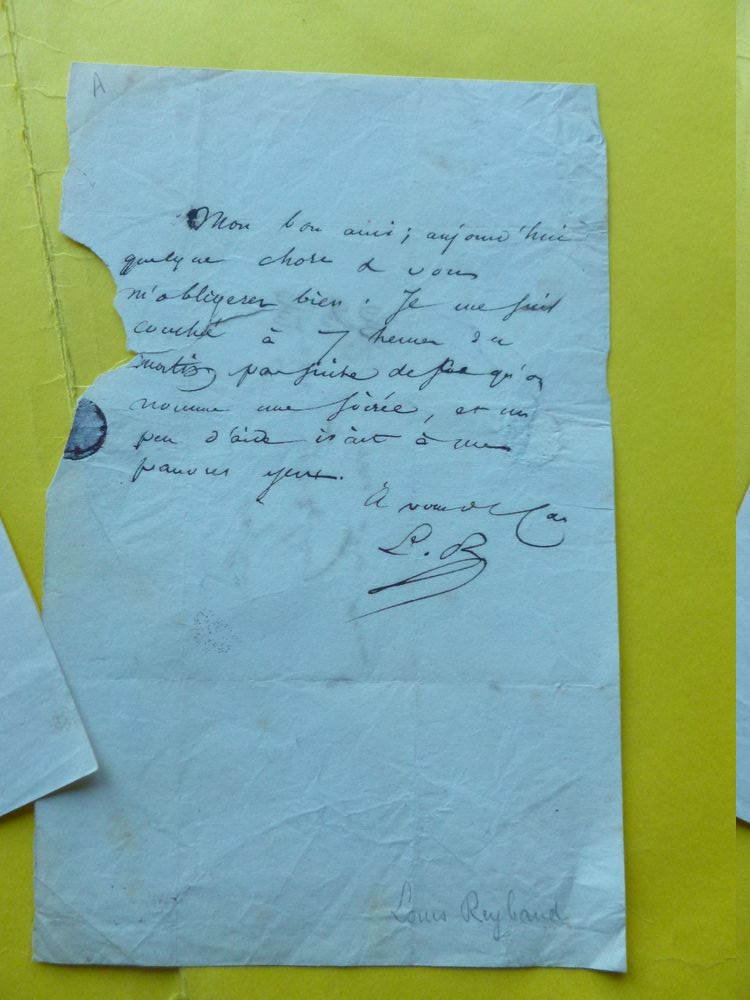 A
Mon bon ami; aujourd'hui
quelque chose de vous
m'obligerez bien. Je me suis
couché à 7 heures du
matin par suite de ce qu'on
nomme une soirée, et un
peu d'aide irait à mes
pauvres yeux.
À vous de
L. R
Louis Reybaud